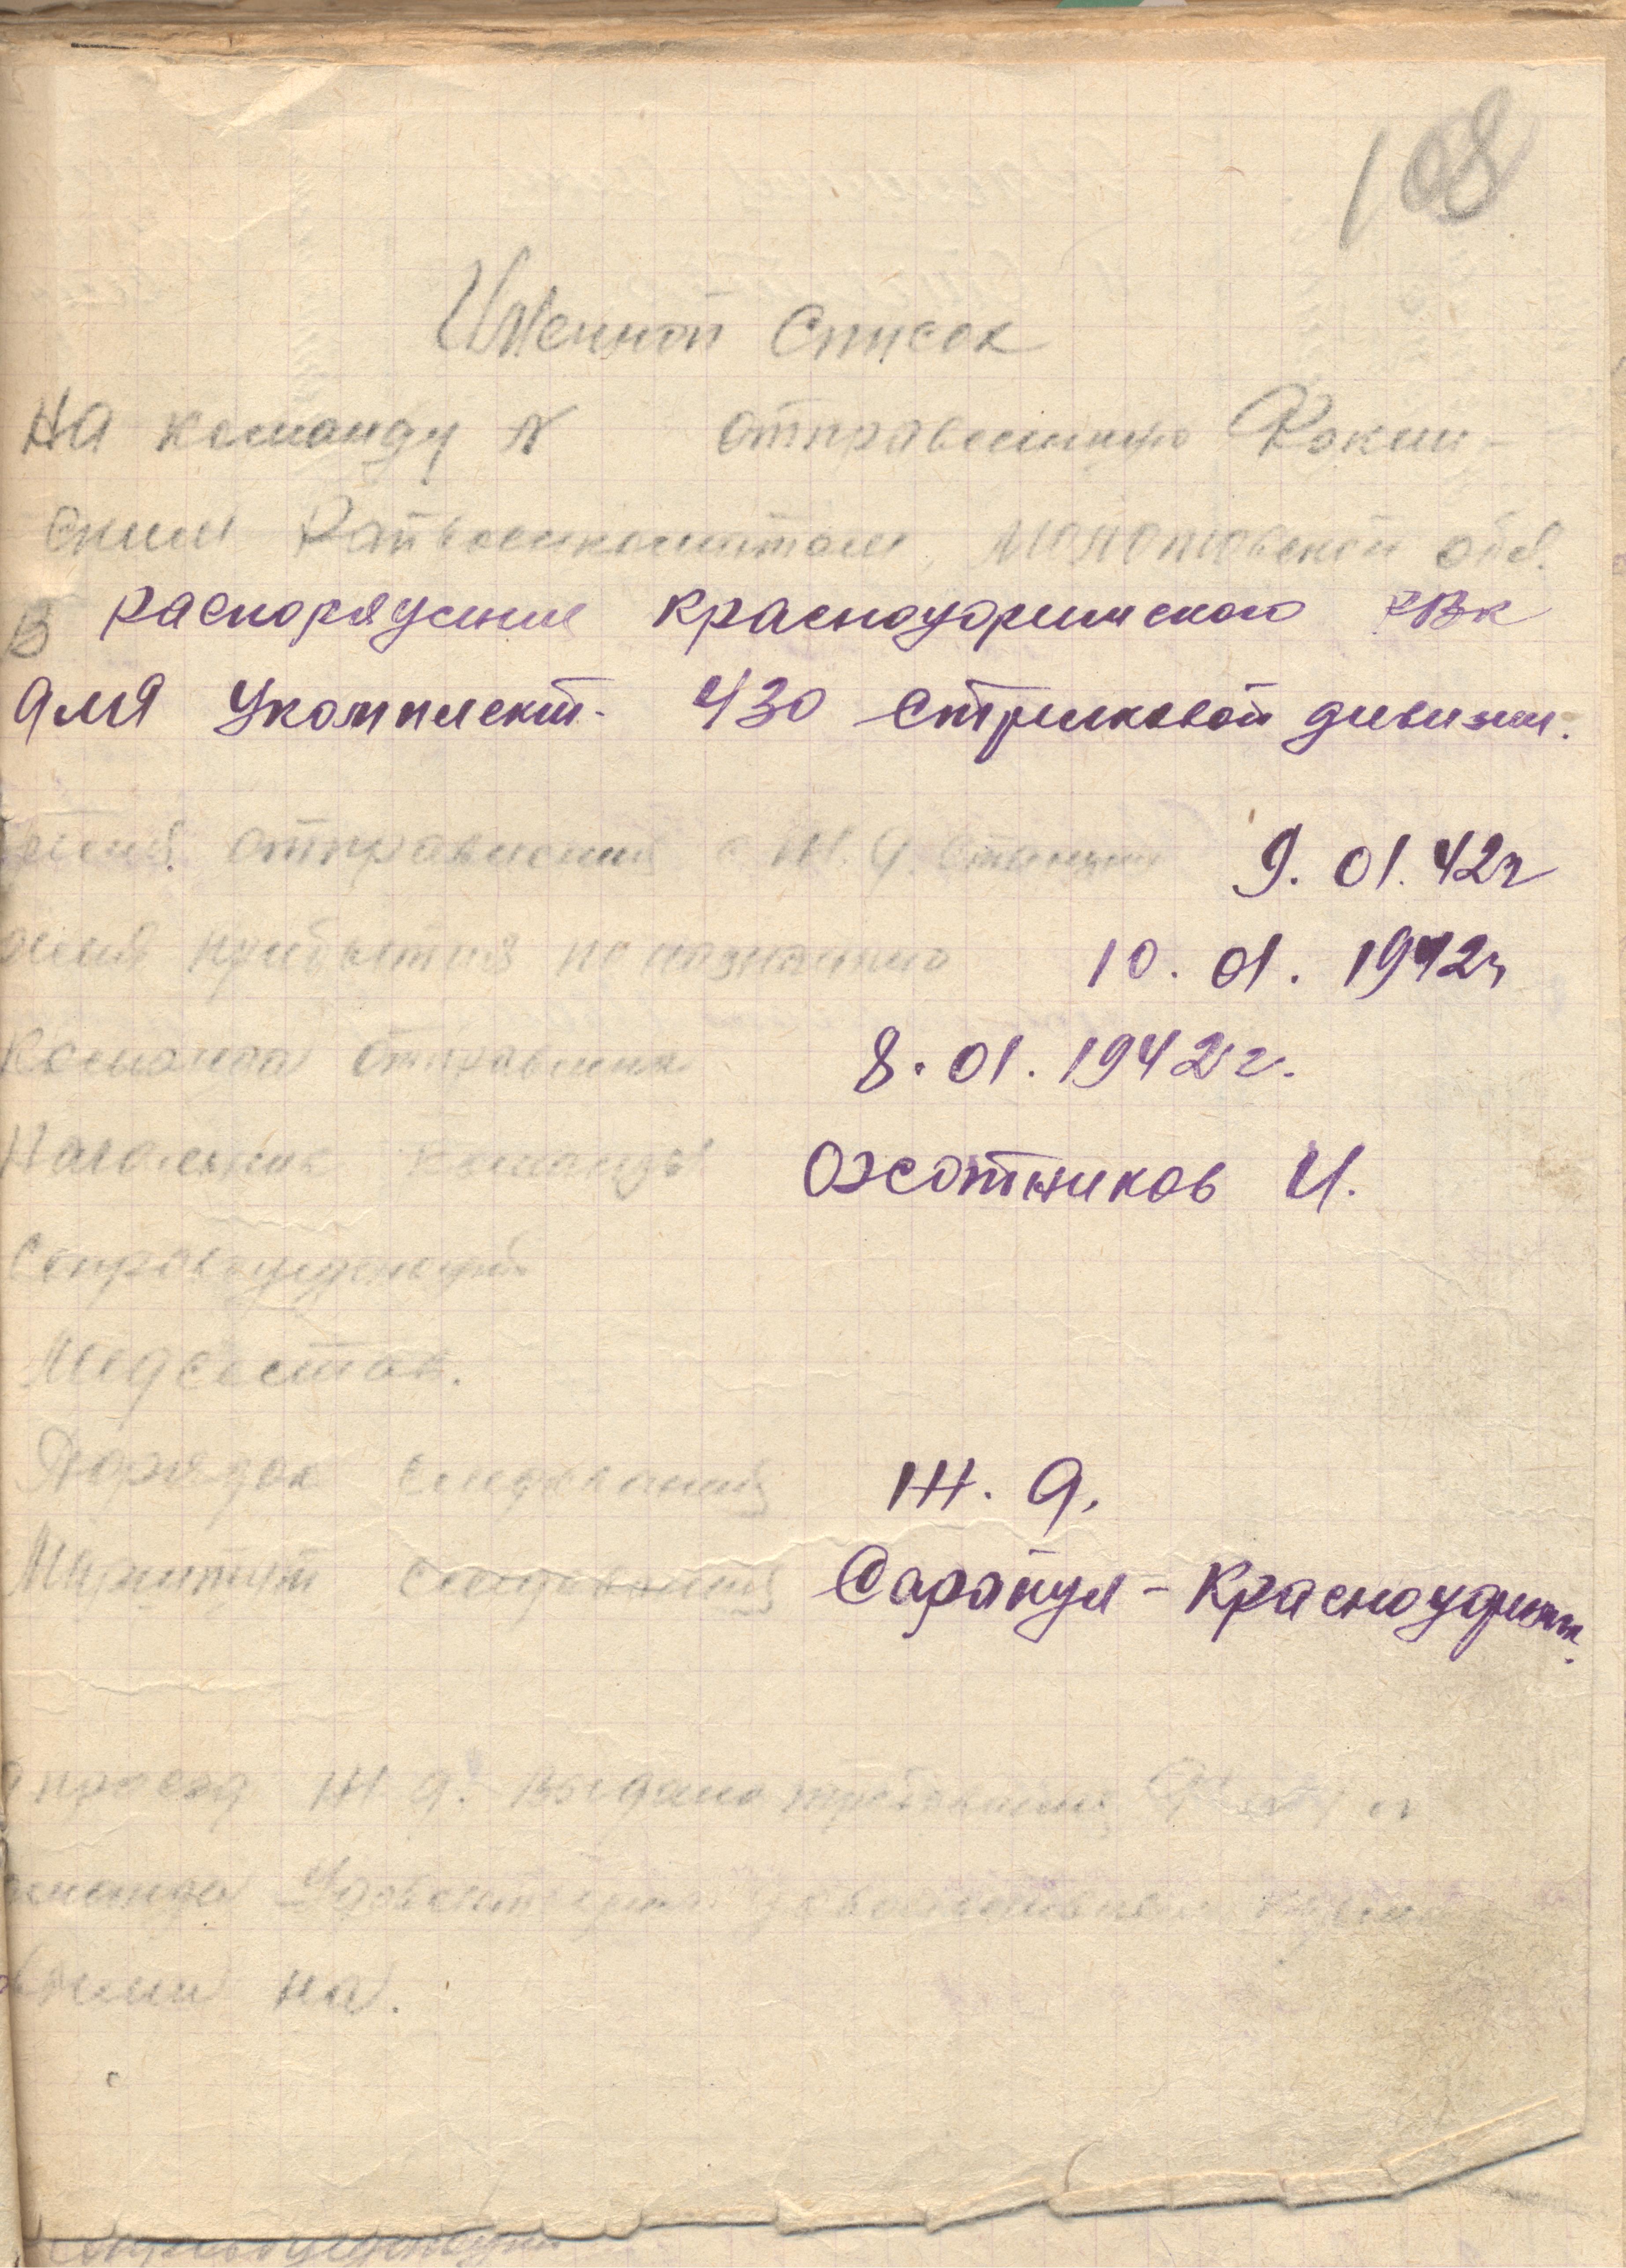 108
Именной список
На команду № отправленную Фокин-
ским Райвоенкоматом, Молотовской обл.
В распоряжение Красноуфимского РВК
для укомплект. 430 стрелковой дивизии.
отправления с ж.д. станции 9.01.42г
прибытия по назначению 10.01.1942г
Команда отправлена 8.01.1942г.
Начальник команды Охотников И.
Сопровождающий
Медсостав.
Порядок следования Ж.д.
Маршрут следования Сарапул-Красноуфимск.
проезд ж.д. выдано требование №
команда
на.